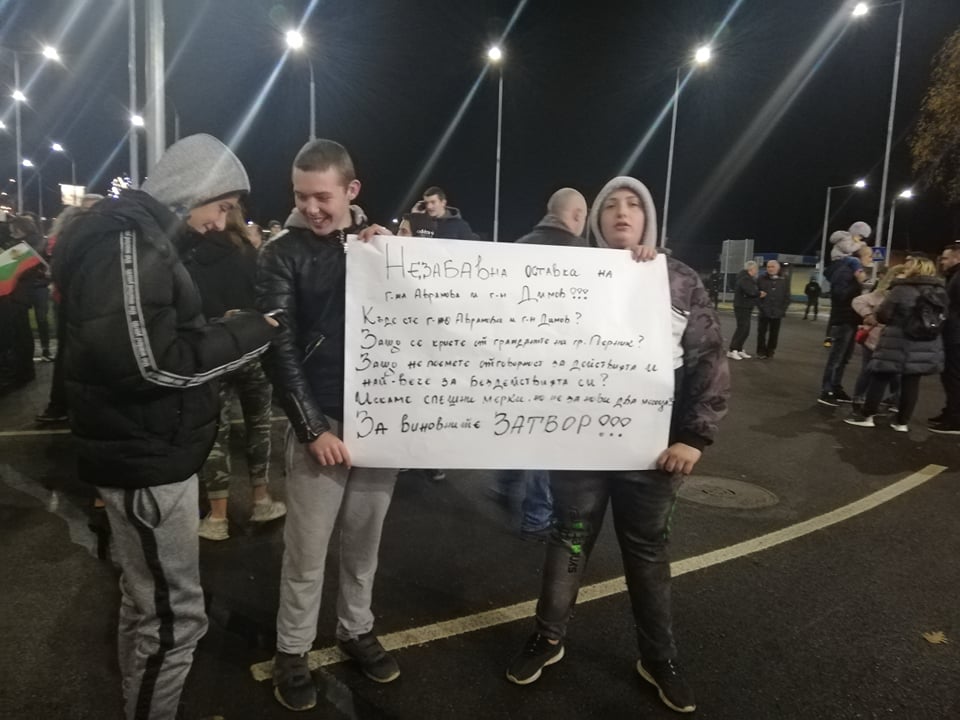 Незабавна оставка на
г-жа Авранова и г-н Димов!!!
Къде сте г-жо Авранова и г-н Димов?
Защо се криете от гражданите на гр. Перник?
Защо не поемете отговорност за действията и
най-вече за бездействията си?
Искаме спешни мерки, но не за нови два месеца
За виновните ЗАТВОР!!!